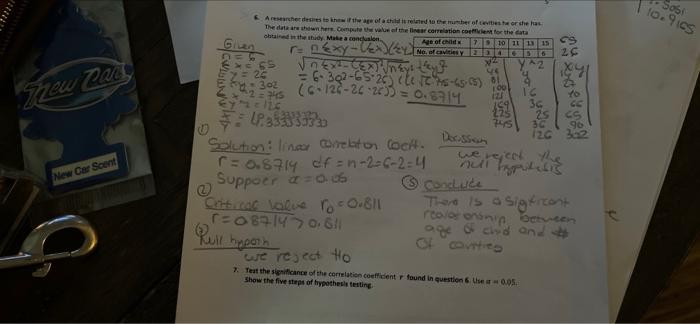 6. A researcher desires to know if the age of a child is related to the number of cavities he or she has.
The data are shown here. Compute the value of the linear correlation coefficient for the data
obtained in the study. Make a conclusion.
Age of child x 7 9 10 11 13 15 65
No. of cavities y 2 3 4 6 5 6 26
Given
n = 6
Σx = 65
Σy = 26
Σxy = 302
Σx^2 = 745
Σy^2 = 126
r = nΣxy-(Σx)(Σy)
= 6·302-65·26
(6·126-26·26) = 0.8714
x^2
49
81
100
121
169
225
745
y^2
4
9
16
36
25
36
126
xy
14
27
40
66
65
90
302
① Solution: linear correlation coeff.
r = 0.8714 df = n-2=6-2=4
Suppoer α = 0.05
②
Critical value r0 = 0.811
r = 0.8714 > 0.811
③
Null hypoth
we reject Ho
we reject the
null
⑤ Conclude
There is a
between
age of child and #
of cavities
7. Test the significance of the correlation coefficient r found in question 6. Use α = 0.05.
Show the five steps of hypothesis testing.
New Car
New Car Scent
10.9165